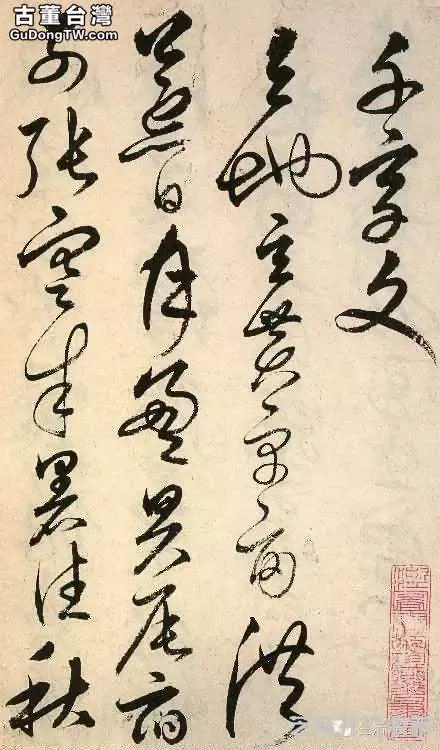 古董台灣
GuDongTW.com
千字文
天地玄黃宇宙洪
荒日月盈昃辰宿
列張寒來暑往秋